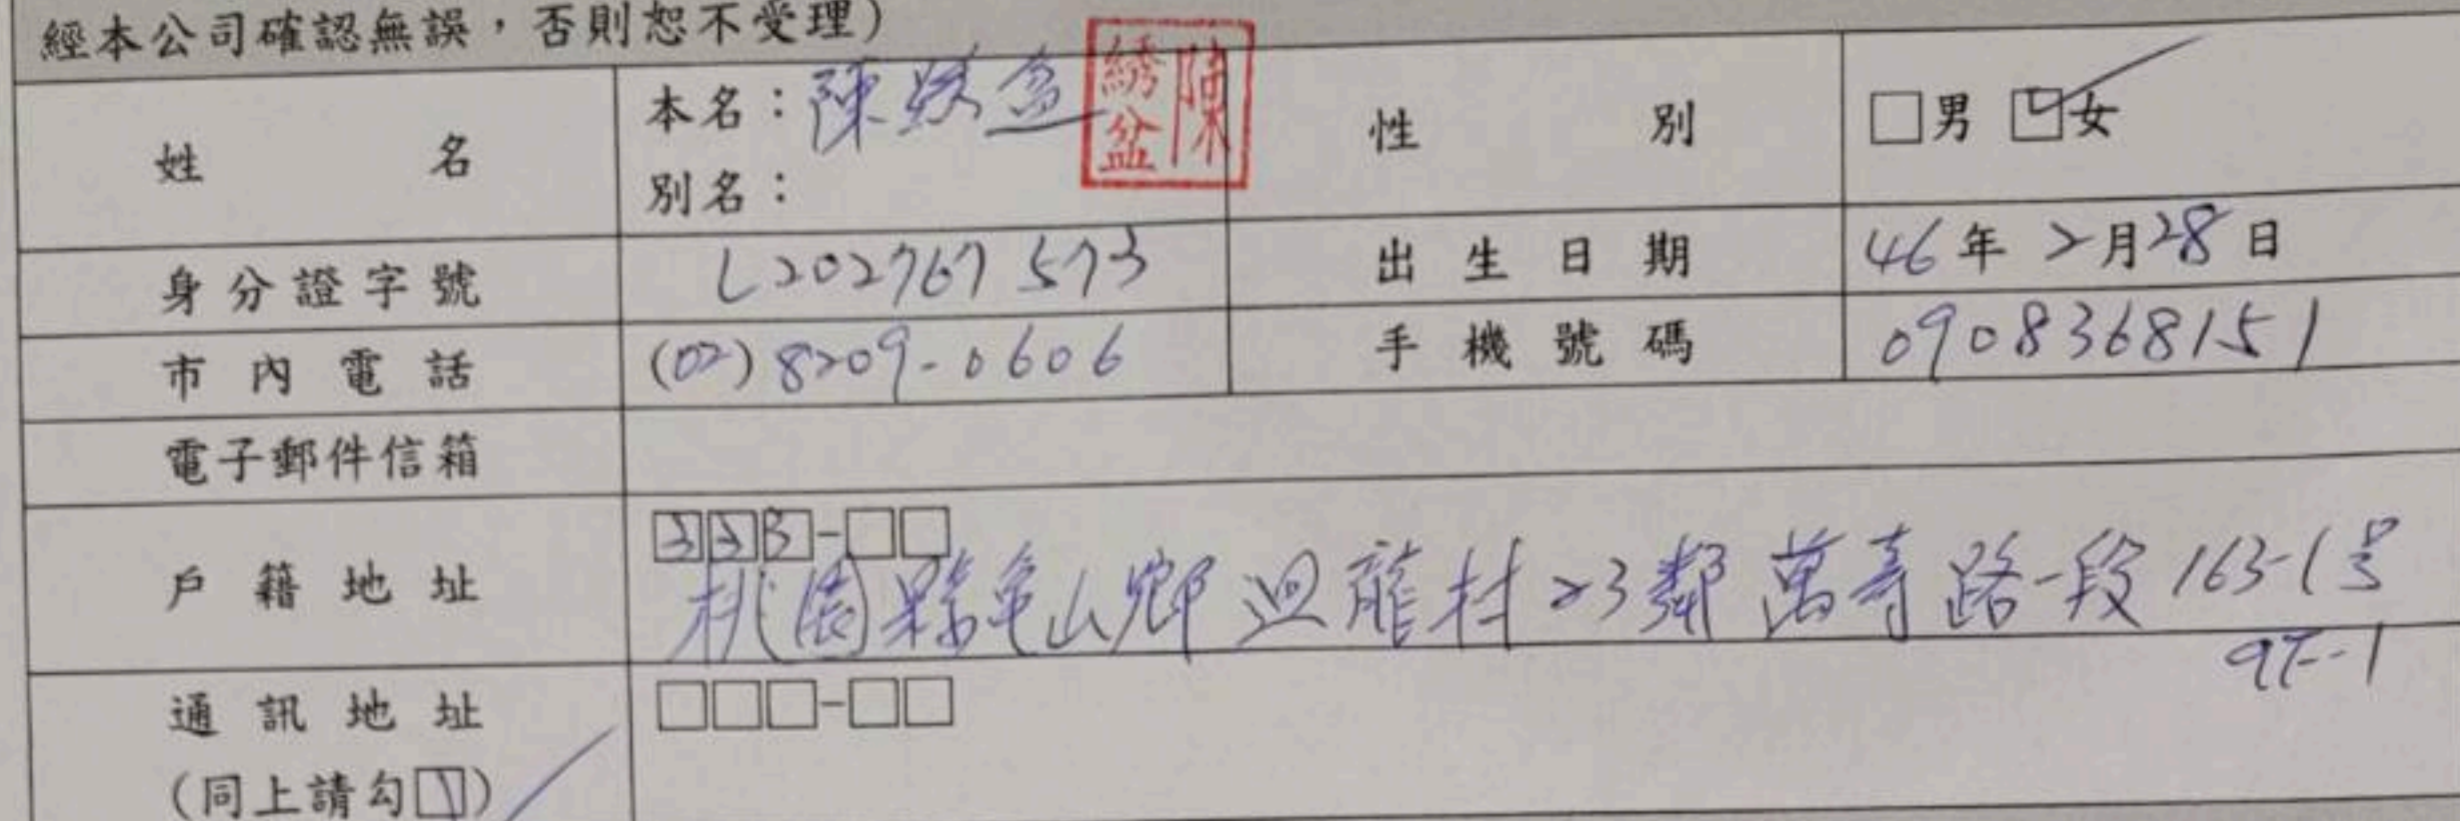 經本公司確認無誤，否則恕不受理）
姓名
本名：陳綉盆
陳綉盆
別名：
性別
□男 ☑女
身分證字號
L202767573
出生日期
46年2月28日
市內電話
(02)8209-0606
手機號碼
0908368151
電子郵件信箱
戶籍地址
333-□□
桃園縣龜山鄉迴龍村23鄰萬壽路一段163-1号
9F-1
通訊地址
□□□-□□
（同上請勾☑）